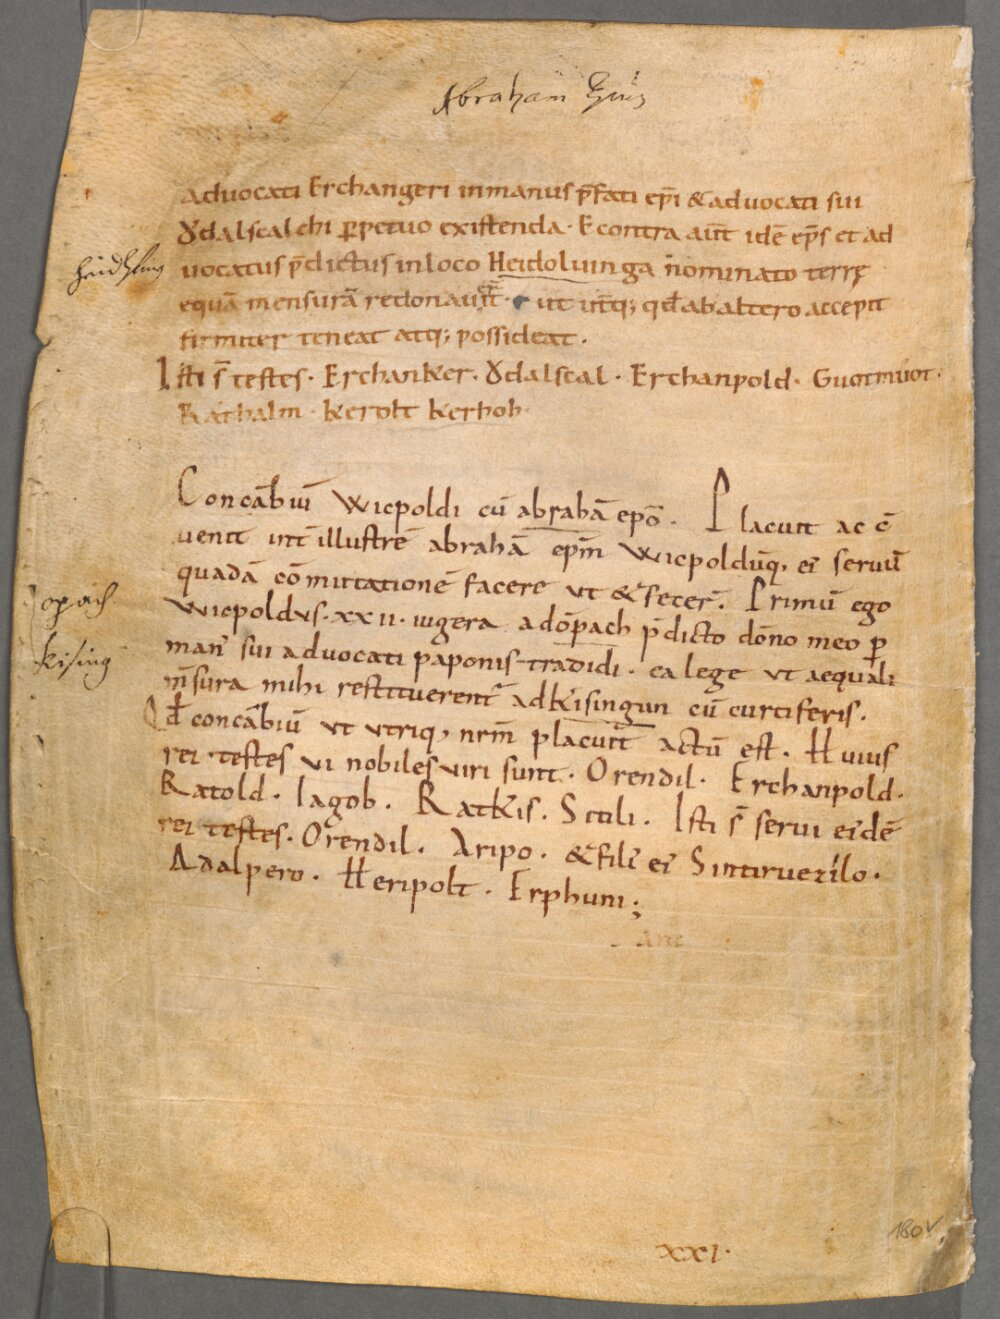 Abraham
Advocati Erchangeri in manus p̄fati ep̄i & advocati sui
Ɣdalscalchi ꝑpetuo existenda · E contra aut̄ idē ep̄s et ad
heidhling
uocatus p̄dictus in loco Heidoluuinga nominato terrę
equā mensurā redonauit · ut ut̄q; qđ ab altero accepit
firmiter teneat atq; possideat .
Isti s̄ testes · Erchanker · Ɣdalscal · Erchanpold · Guotmuot ·
Rathalm · Kerolt Kerhoh ·
Concābiū Wicpoldi cū abrahā ep̄o . Placuit ac c̄
uenit int̄ illustrē abrahā ep̄m Wicpoldūq, ei seruū
quadā cōmutationē facere ut & fecer̄ . Primū ego
opach
Wicpoldus · xxii · iugera ad ōpach p̄dicto dōno meo ꝑ
kising
man' sui advocati paponis tradidi · ea lege ut aequali
m̄sura mihi restituerent' ad Kisingun cū curtiferis .
Qđ concābiū ut utriq, nr̄m placuit actū est . Huius
rei testes vi nobiles viri sunt · Orendil · Erchanpold .
Ratold . Iagob . Ratkis . Scili . Isti s̄ serui eidē
rei testes . Orendil . Aripo . & fili' ei Sintiruuezilo .
Adalpero . Heripolt . Erphuni ;
xxi ·
180v